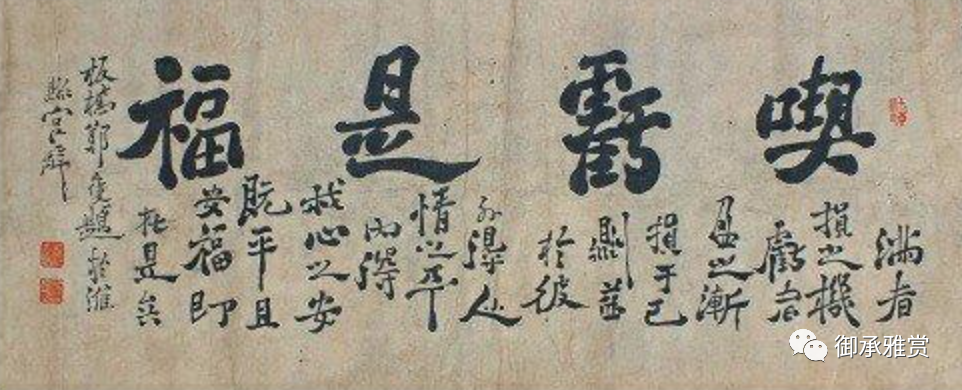 喫虧是福
滿者
損之機
虧者
盈之漸
損于己
則益
於彼
外得人
情之平
內得
我心之安
既平且
安福即
在是矣
板橋鄭燮題於濰
縣官廨
御承雅赏